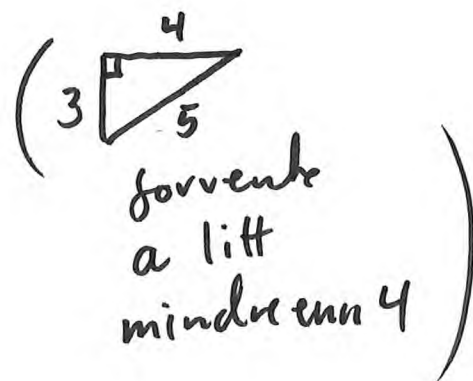 4
3
5
forvente
a litt
mindre enn 4